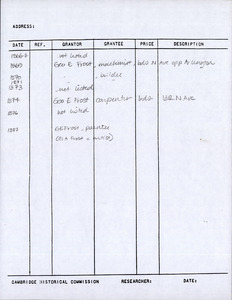 ADDRESS:
DATE REF. GRANTOR GRANTEE PRICE DESCRIPTION
not listed
1869 Geo E Frost, machinist, bds N Ave opp Arlington
1870 " , builder
1871
1873 not listed
1874 Geo E Frost carpenter bds N Ave
1876 not listed
GEFrost, painter
CAMBRIDGE HISTORICAL COMMISSION RESEARCHER: DATE: